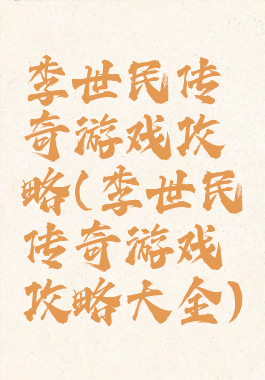 李世民传
奇游戏攻
略(李世民
传奇游戏
攻略大全)